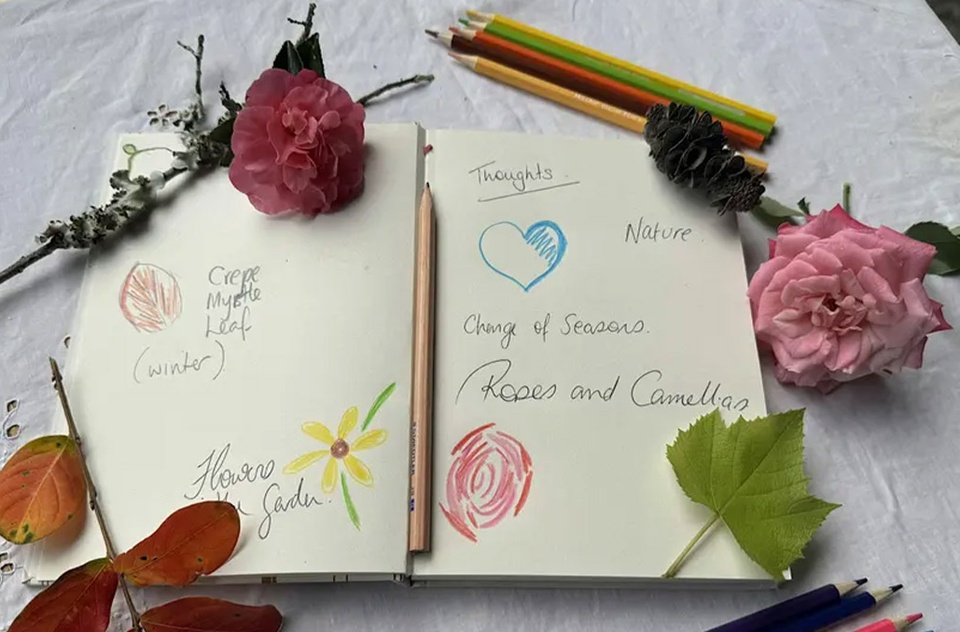 Crepe
Myrtle
Leaf
(winter).
Flowers
the Garden.
Thoughts.
Nature.
Change of Seasons.
Roses and Camellias